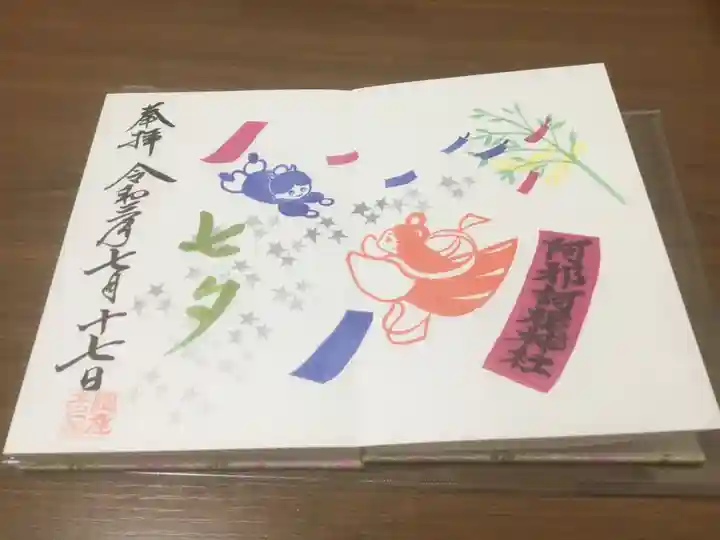 奉拝
令和二年七月十七日
七夕
阿邪訶根神社